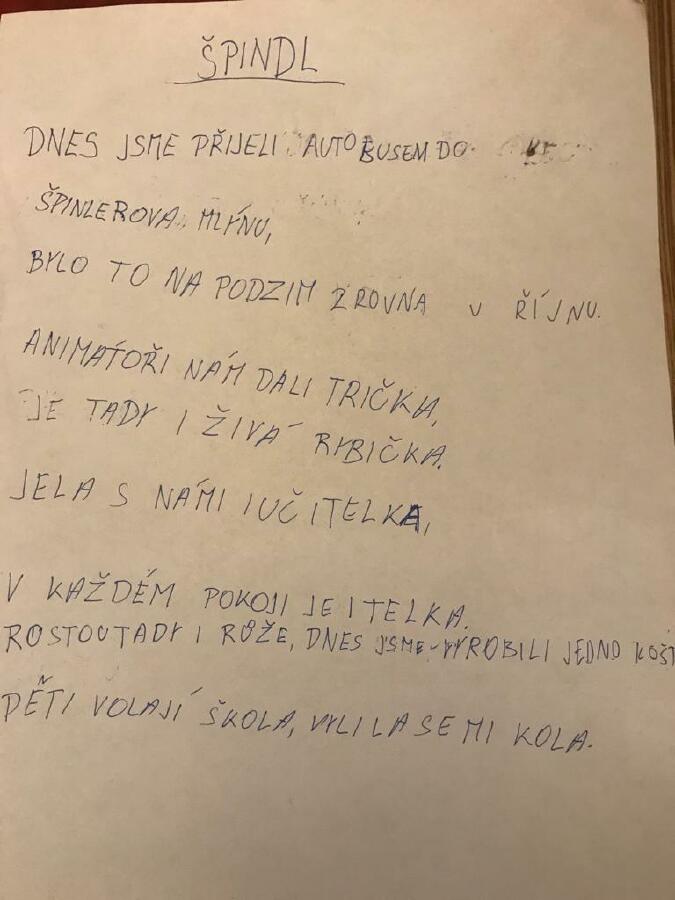 ŠPINDL
DNES JSME PŘIJELI AUTOBUSEM DO
ŠPINLEROVA MLÝNU,
BYLO TO NA PODZIM ZROVNA V ŘÍJNU.
ANIMÁTOŘI NÁM DALI TRIČKA,
JE TADY I ŽIVÁ RYBIČKA.
JELA S NÁMI I UČITELKA,
V KAŽDÉM POKOJI JE ITELKA.
ROSTOU TADY I RŮŽE, DNES JSME VYROBILI JEDNO
DĚTI VOLAJÍ ŠKOLA, VYLILA SE MI KOLA.